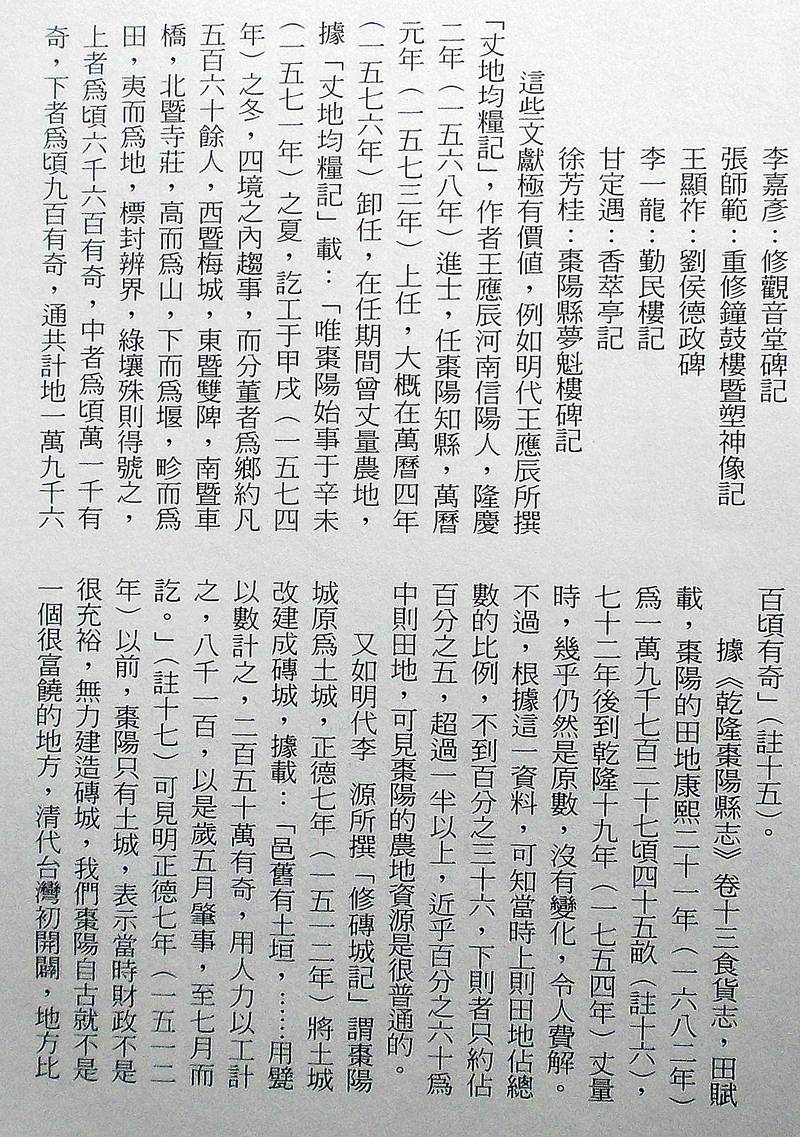 李嘉彥：修觀音堂碑記
張師範：重修鐘鼓樓暨塑神像記
王顯祚：劉侯德政碑
李一龍：勤民樓記
甘定遇：香萃亭記
徐芳桂：棗陽縣夢魁樓碑記
這些文獻極有價值，例如明代王應辰所撰
「丈地均糧記」，作者王應辰河南信陽人，隆慶
二年（一五六八年）進士，任棗陽知縣，萬曆
元年（一五七三年）上任，大概在萬曆四年
（一五七六年）卸任，在任期間曾丈量農地，
據「丈地均糧記」載：「唯棗陽始事于辛未
（一五七一年）之夏，訖工于甲戌（一五七四
年）之冬，四境之內趨事，而分董者為鄉約凡
五百六十餘人，西暨梅城，東暨雙陴，南暨車
橋，北暨寺莊，高而為山，下而為堰，畛而為
田，夷而為地，標封辨界，綠壤殊則得號之，
上者為頃六千六百有奇，中者為頃萬一千有
奇，下者為頃九百有奇，通共計地一萬九千六
百頃有奇」（註十五）。
據《乾隆棗陽縣志》卷十三食貨志，田賦
載，棗陽的田地康熙二十一年（一六八二年）
為一萬九千七百二十七頃四十五畝（註十六），
七十二年後到乾隆十九年（一七五四年）丈量
時，幾乎仍然是原數，沒有變化，令人費解。
不過，根據這一資料，可知當時上則田地佔總
數的比例，不到百分之三十六，下則者只約佔
百分之五，超過一半以上，近乎百分之六十為
中則田地，可見棗陽的農地資源是很普通的。
又如明代李　源所撰「修磚城記」謂棗陽
城原為土城，正德七年（一五一二年）將土城
改建成磚城，據載：「邑舊有土垣，……用甓
以數計之，二百五十萬有奇，用人力以工計
之，八千一百，以是歲五月肇事，至七月而
訖。」（註十七）可見明正德七年（一五一二
年）以前，棗陽只有土城，表示當時財政不是
很充裕，無力建造磚城，我們棗陽自古就不是
一個很富饒的地方，清代台灣初開闢，地方比